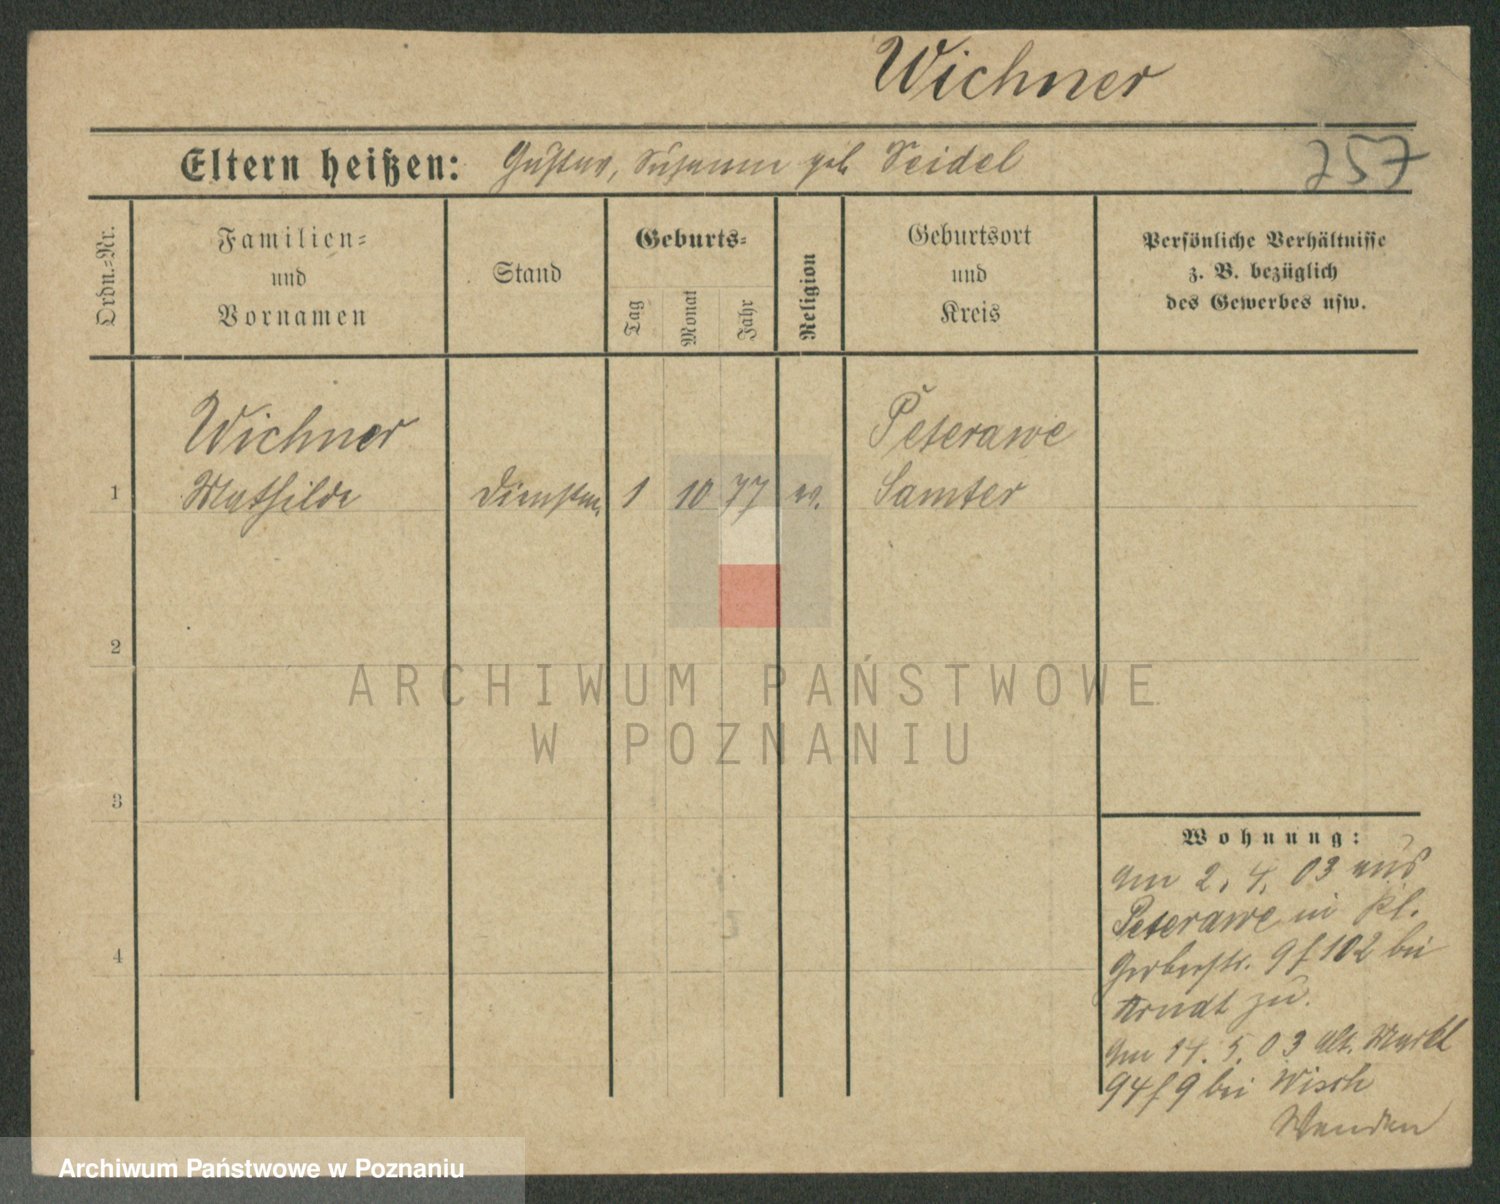 Wichner
Eltern heißen: Gustav, Susanna geb. Seidel
257
Ordn.-Nr.
Familien-
und
Vornamen
Stand
Geburts-
Tag
Monat
Jahr
Religion
Geburtsort
und
Kreis
Persönliche Verhältnisse
z. B. bezüglich
des Gewerbes usw.
Wichner
Peterawe
1 Mathilde Dienstm. 1 10 77 ev. Samter
2
ARCHIWUM PAŃSTWOWE
W POZNANIU
3
Wohnung:
am 2. 4. 03 aus
Peterawe in Kl.
Gerberstr. 9 f 102 bei
Arndt zu.
4
am 14. 5. 03 Alt. Markt
94 f 9 bei Wisch
Wenden
Archiwum Państwowe w Poznaniu